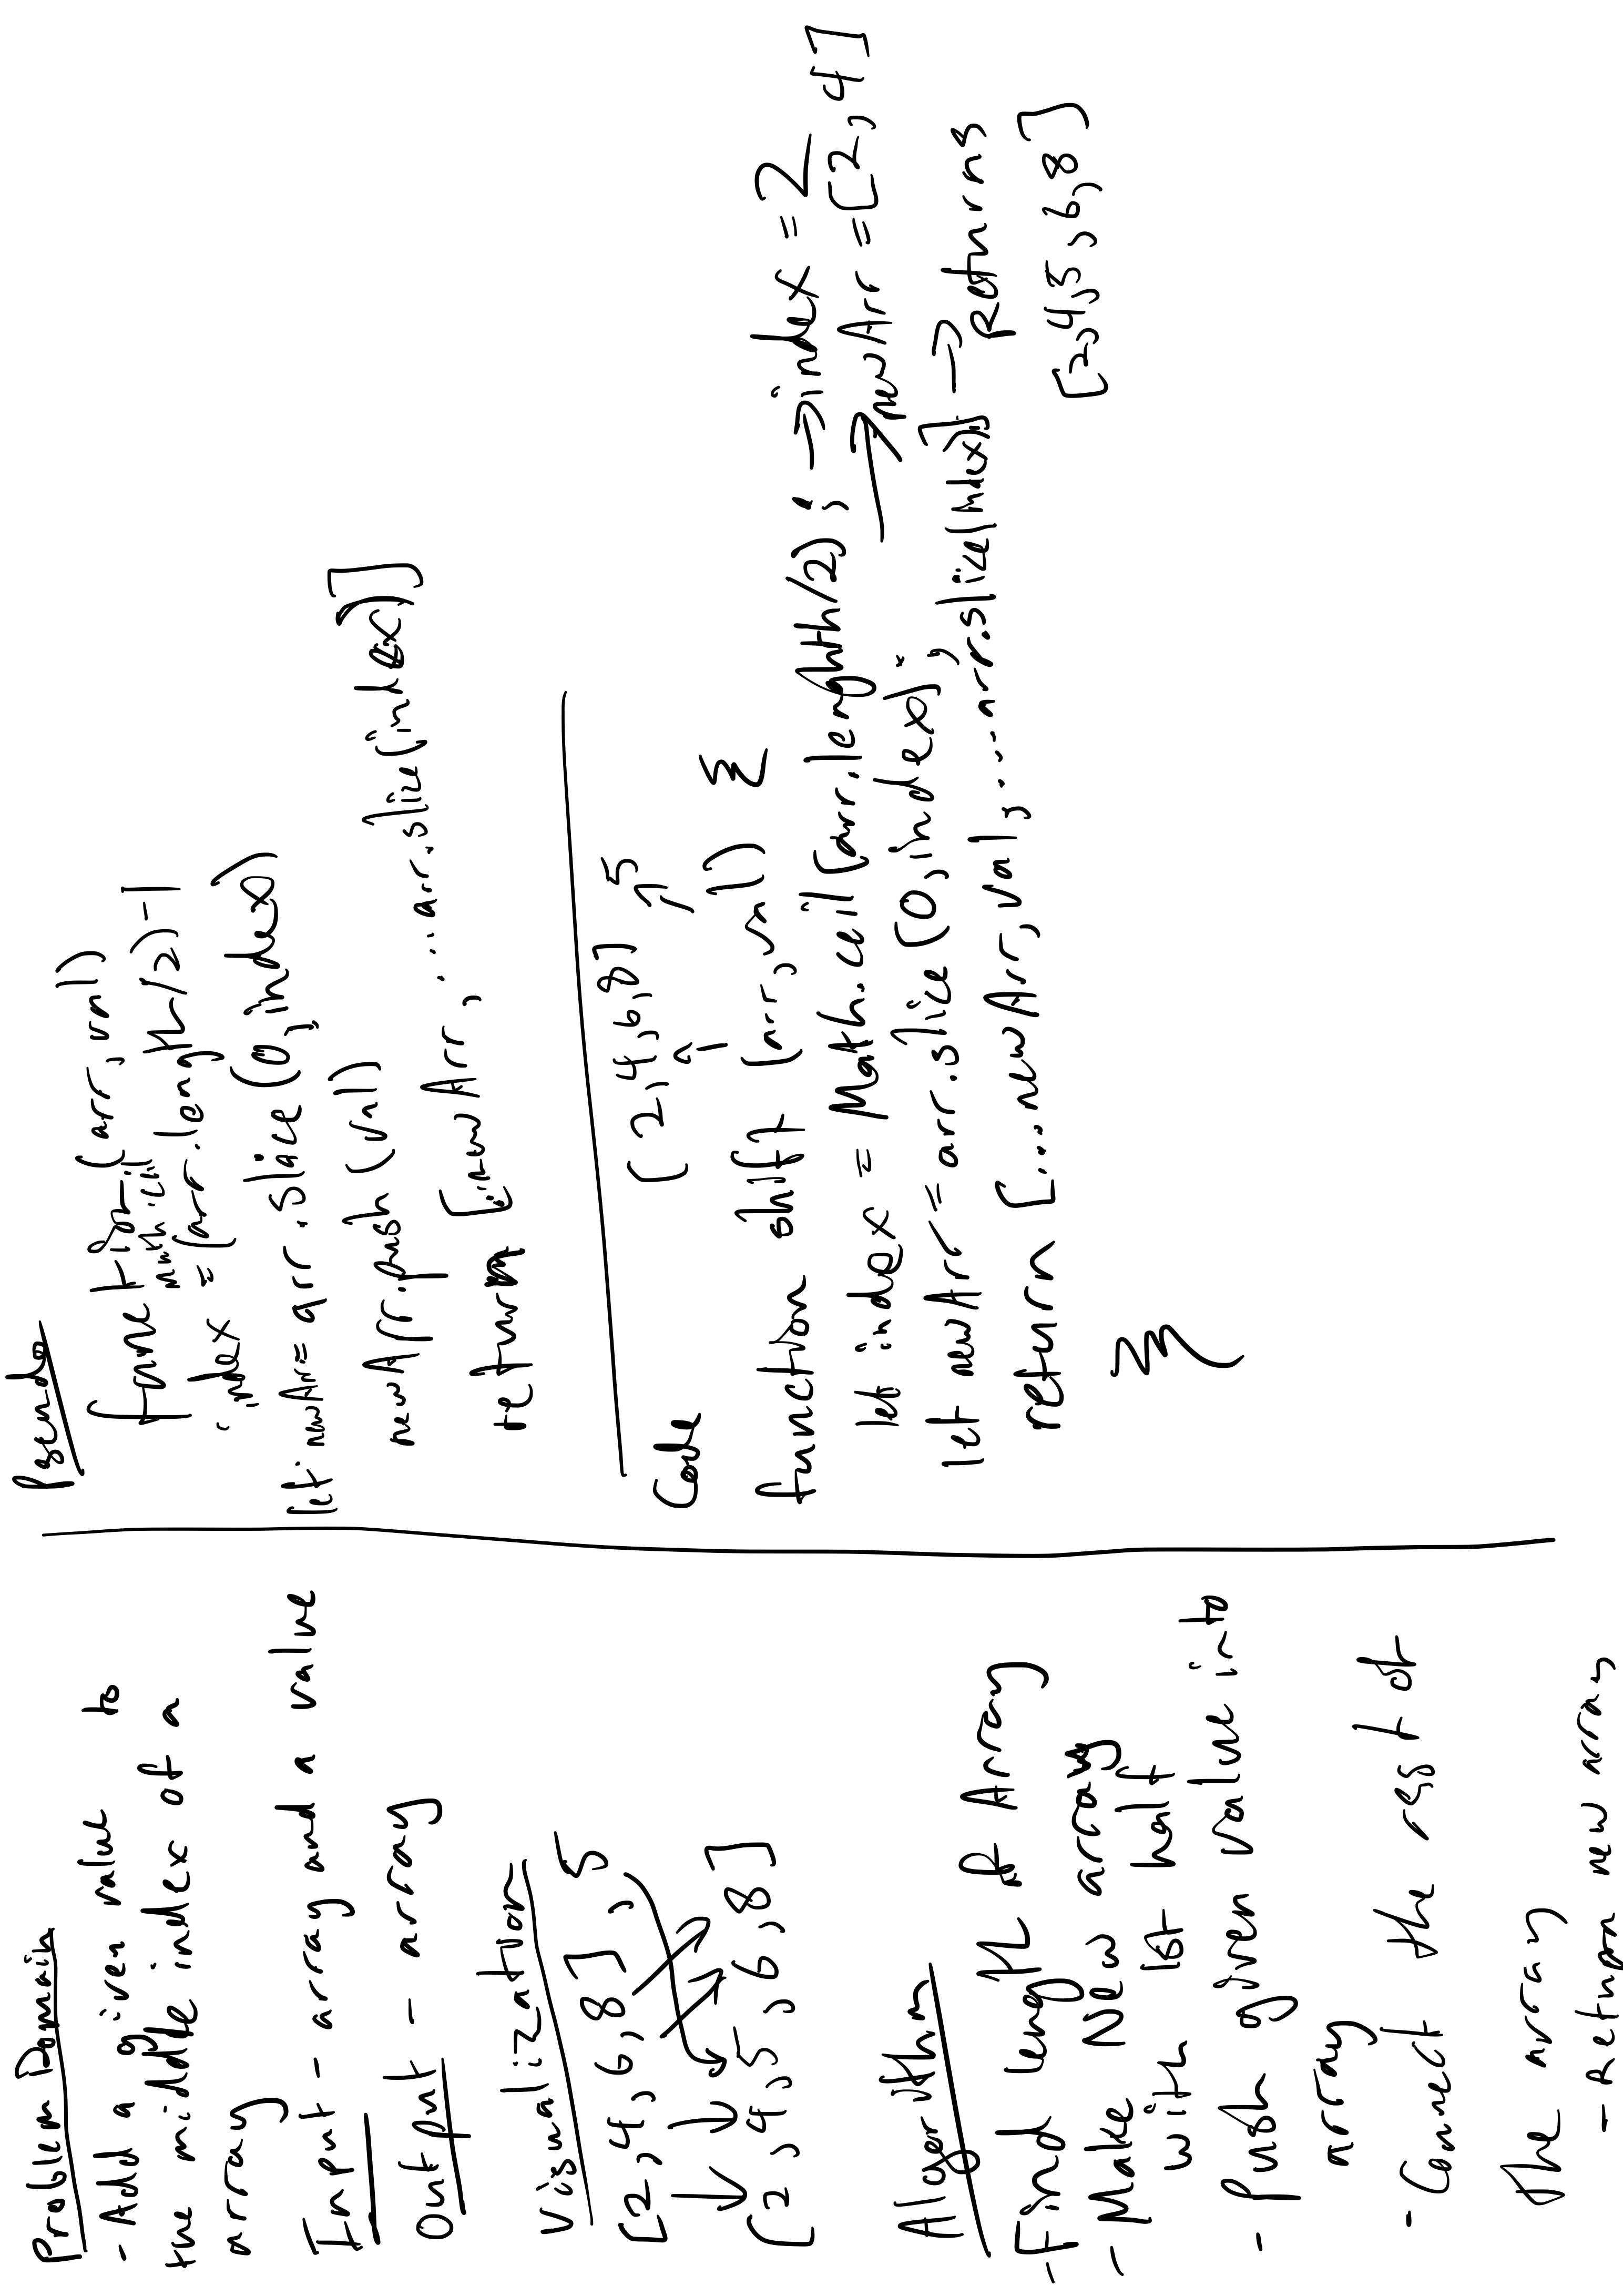 Problem Domain
- Add a given value to
the middle index of a
array
Input - array and a value
Output - array
Visualization
[2,4,6,8], 5
[2,4,5,6,8]
Algorithm
- Find length of Array
- Make New array
with 1st half
- Push given value into
array
- Connect the rest of
the array
- Return new array
Pseudo
(arr, val)
math.ceil
index = (arr.length/2)-1
let newArr = arr.slice(0,index)
newArr.push(val)
return [...newArr, ...arr.slice(index)]
Code
[2,4,6,8] 5
function shift (arr, val) {
let index = Math.ceil(arr.lenghth/2); → index = 2
let newArr = arr.slice(0,index); → newArr = [2,4]
return [...newArr, val, ...arr.slice(index)] → Returns
[2,4,5,6,8]
}